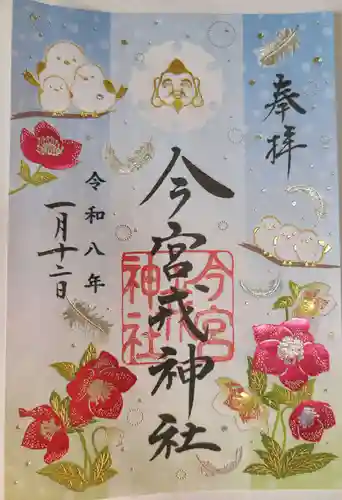 奉拝
今宮戎神社
今宮
戎
神社
令和八年
一月十二日